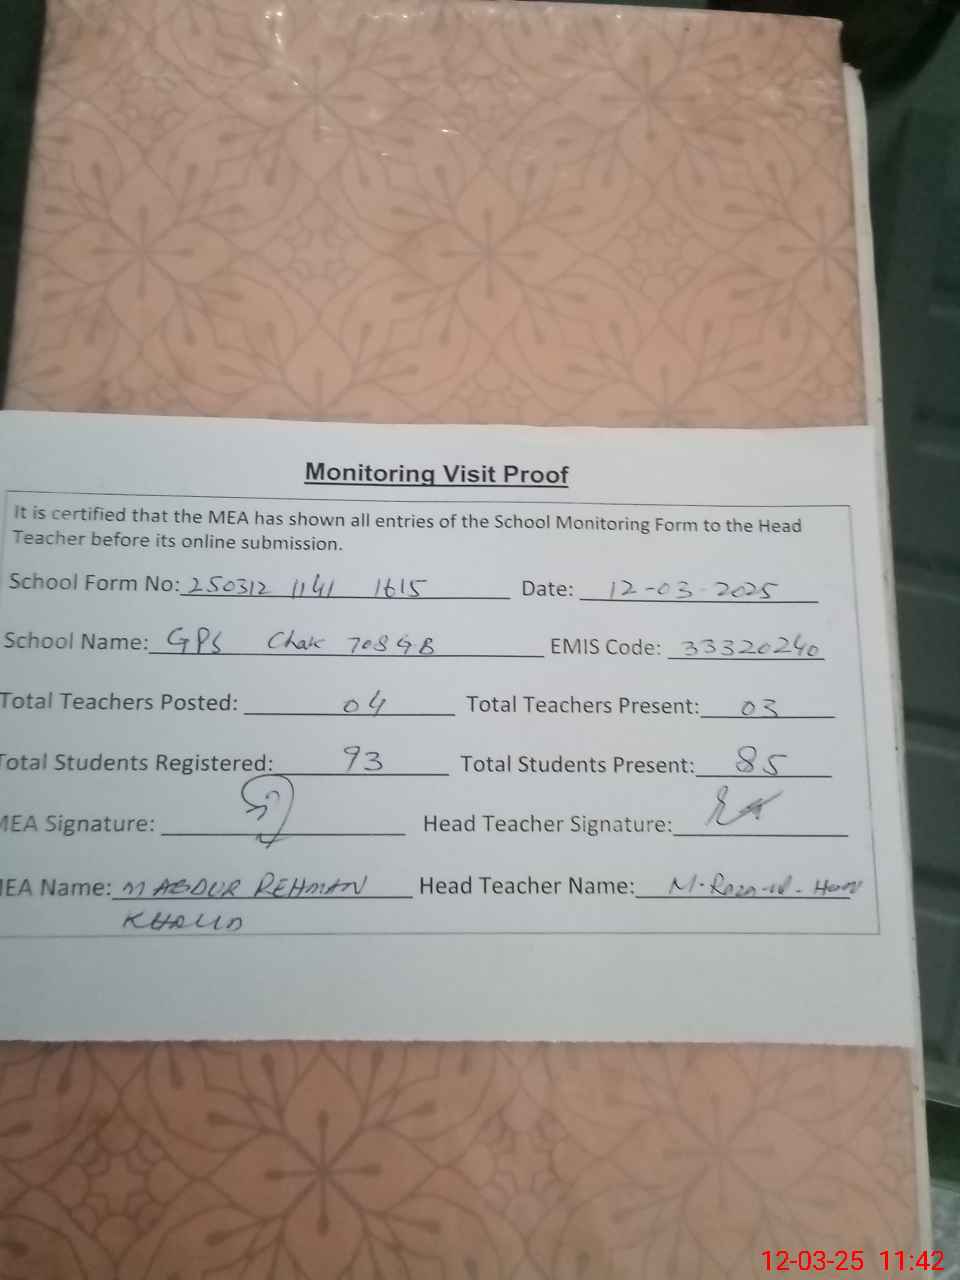 Monitoring Visit Proof
It is certified that the MEA has shown all entries of the School Monitoring Form to the Head
Teacher before its online submission.
School Form No: 250312 1141 1615 Date: 12-03-2025
School Name: GPS Chak 708 GB EMIS Code: 33320240
Total Teachers Posted: 04 Total Teachers Present: 03
Total Students Registered: 93 Total Students Present: 85
MEA Signature: Head Teacher Signature:
MEA Name: M ABDUR REHMAN Head Teacher Name: M.
KHALID
12-03-25 11:42